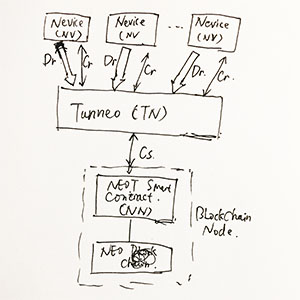 Nevice
(NV)
Nevice
(NV
...
Nevice
(NV)
Dr
Cr
Dr.
Cr
Dr.
Cr.
Tunneo (TN)
Cs.
NEOT Smart
Contract.
(NN)
BlockChain
Node.
NEO Block
Chain.